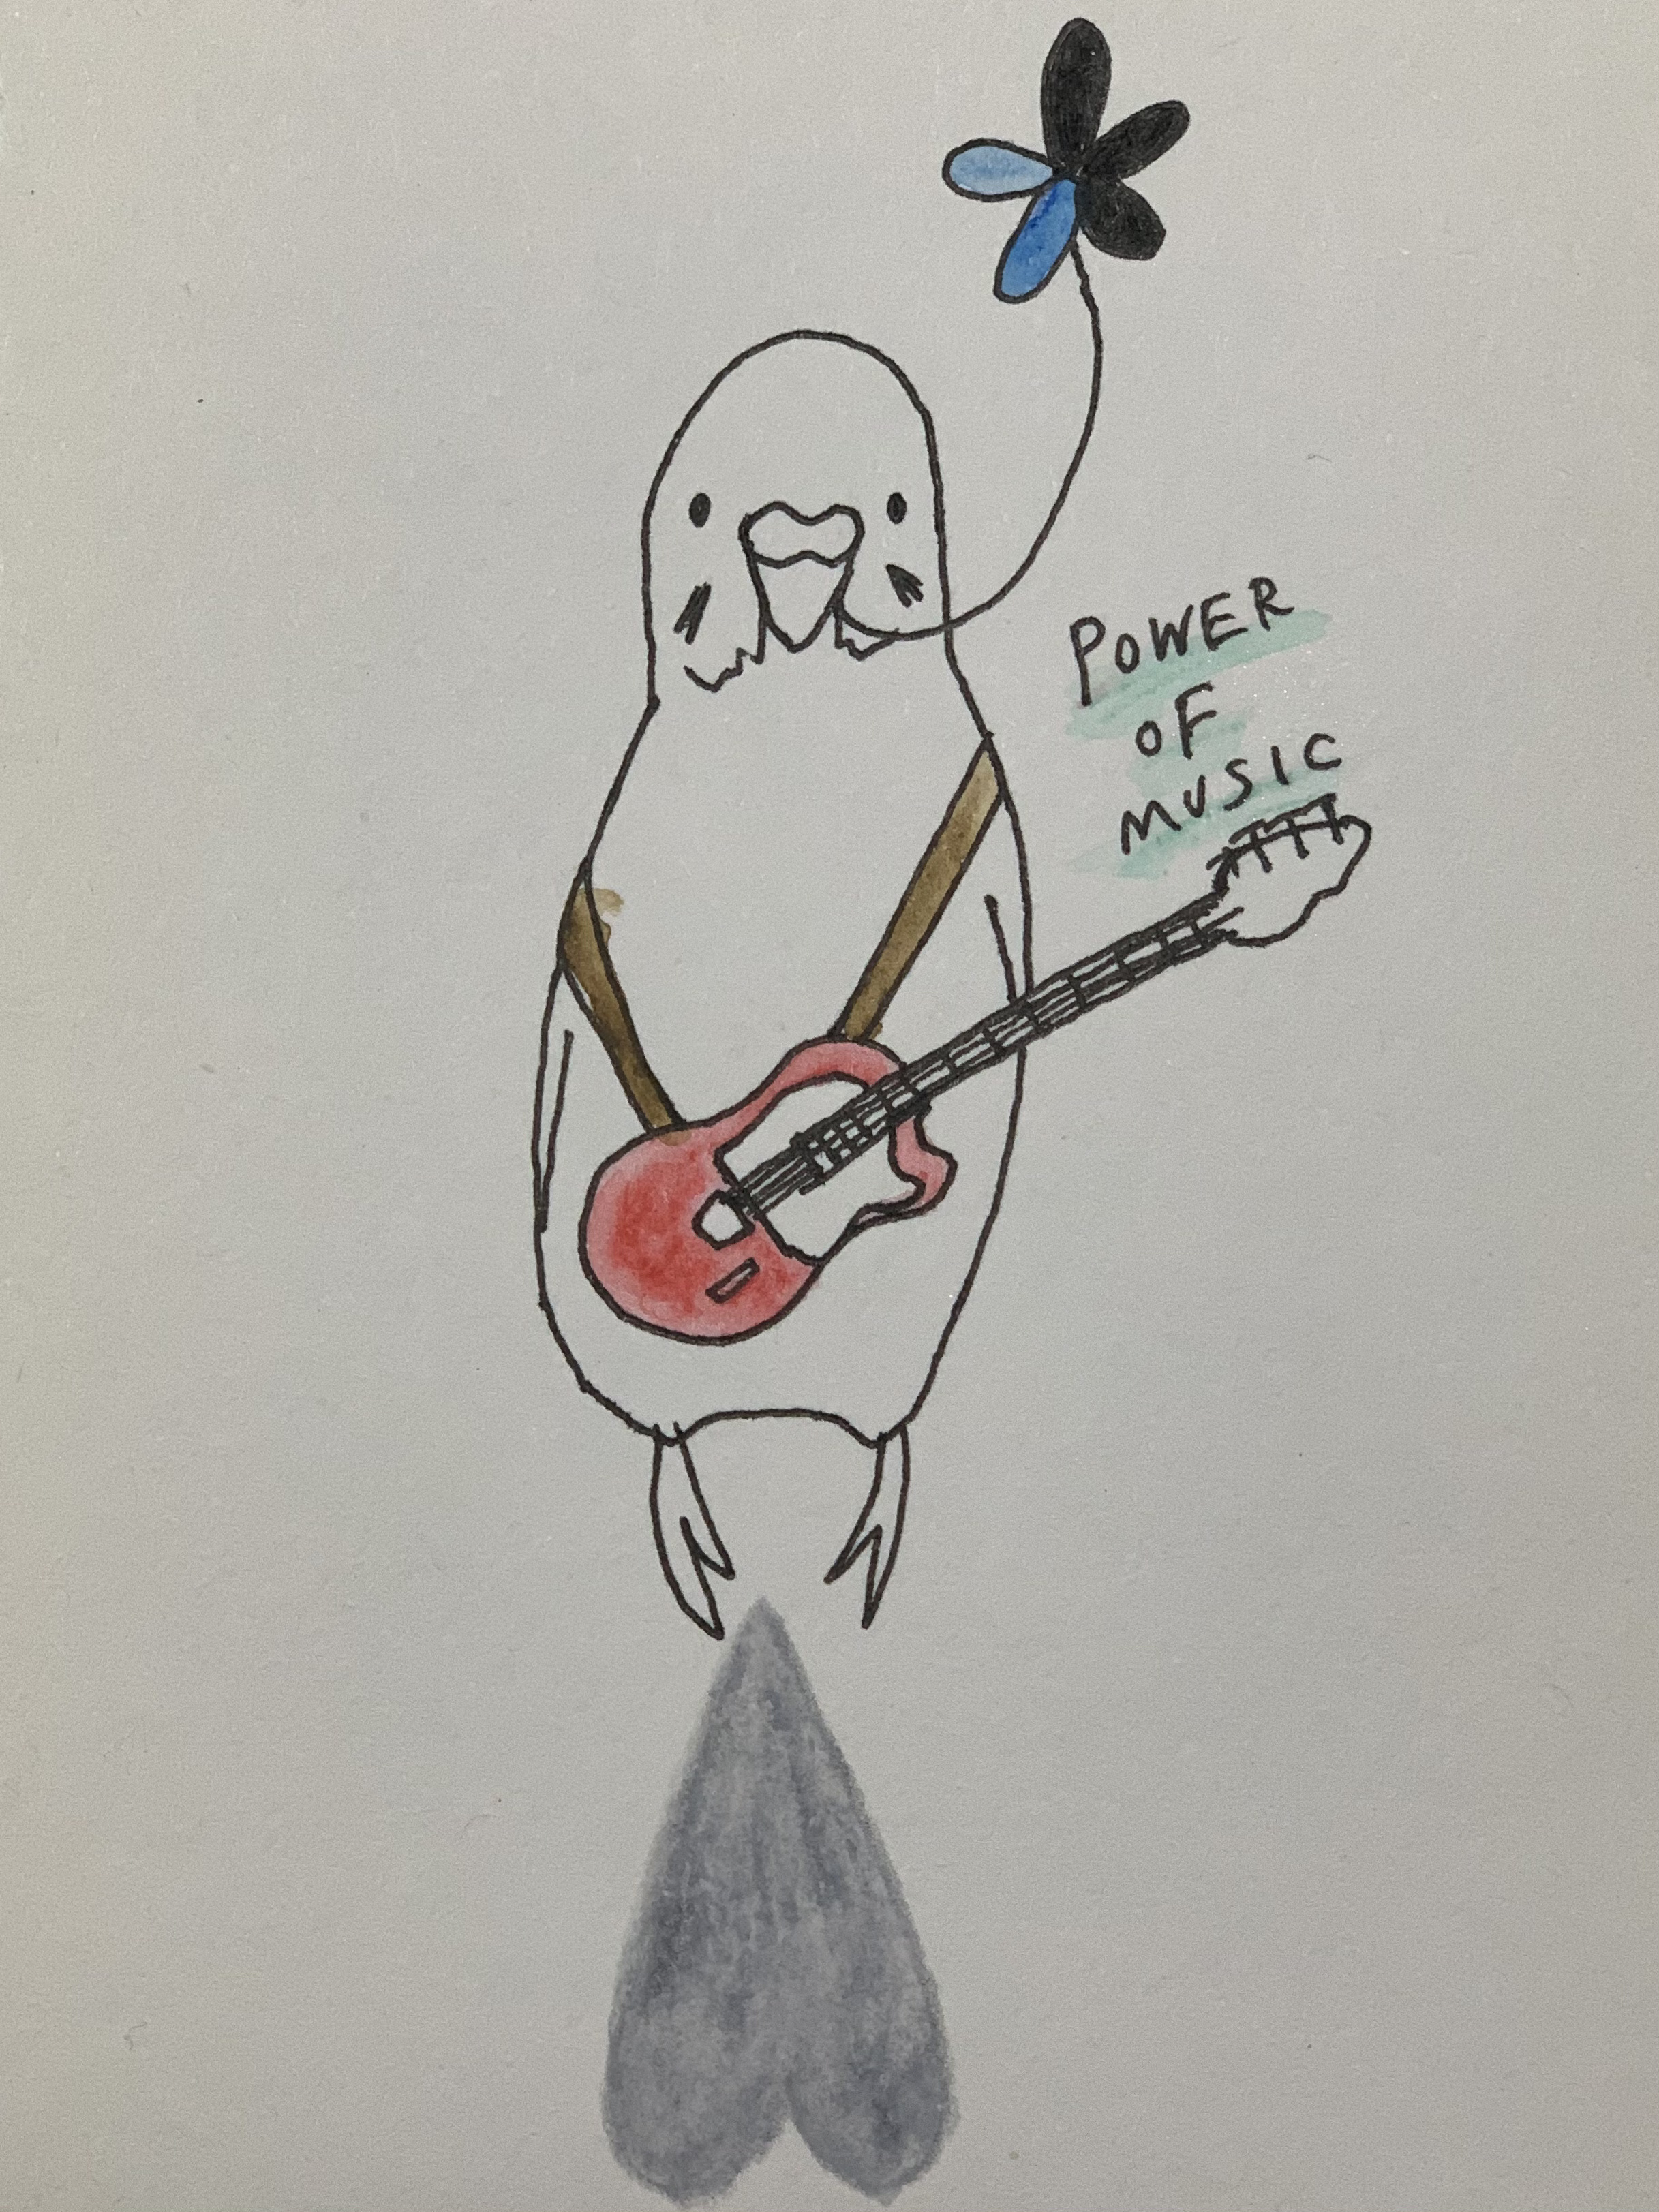 POWER
OF
MUSIC